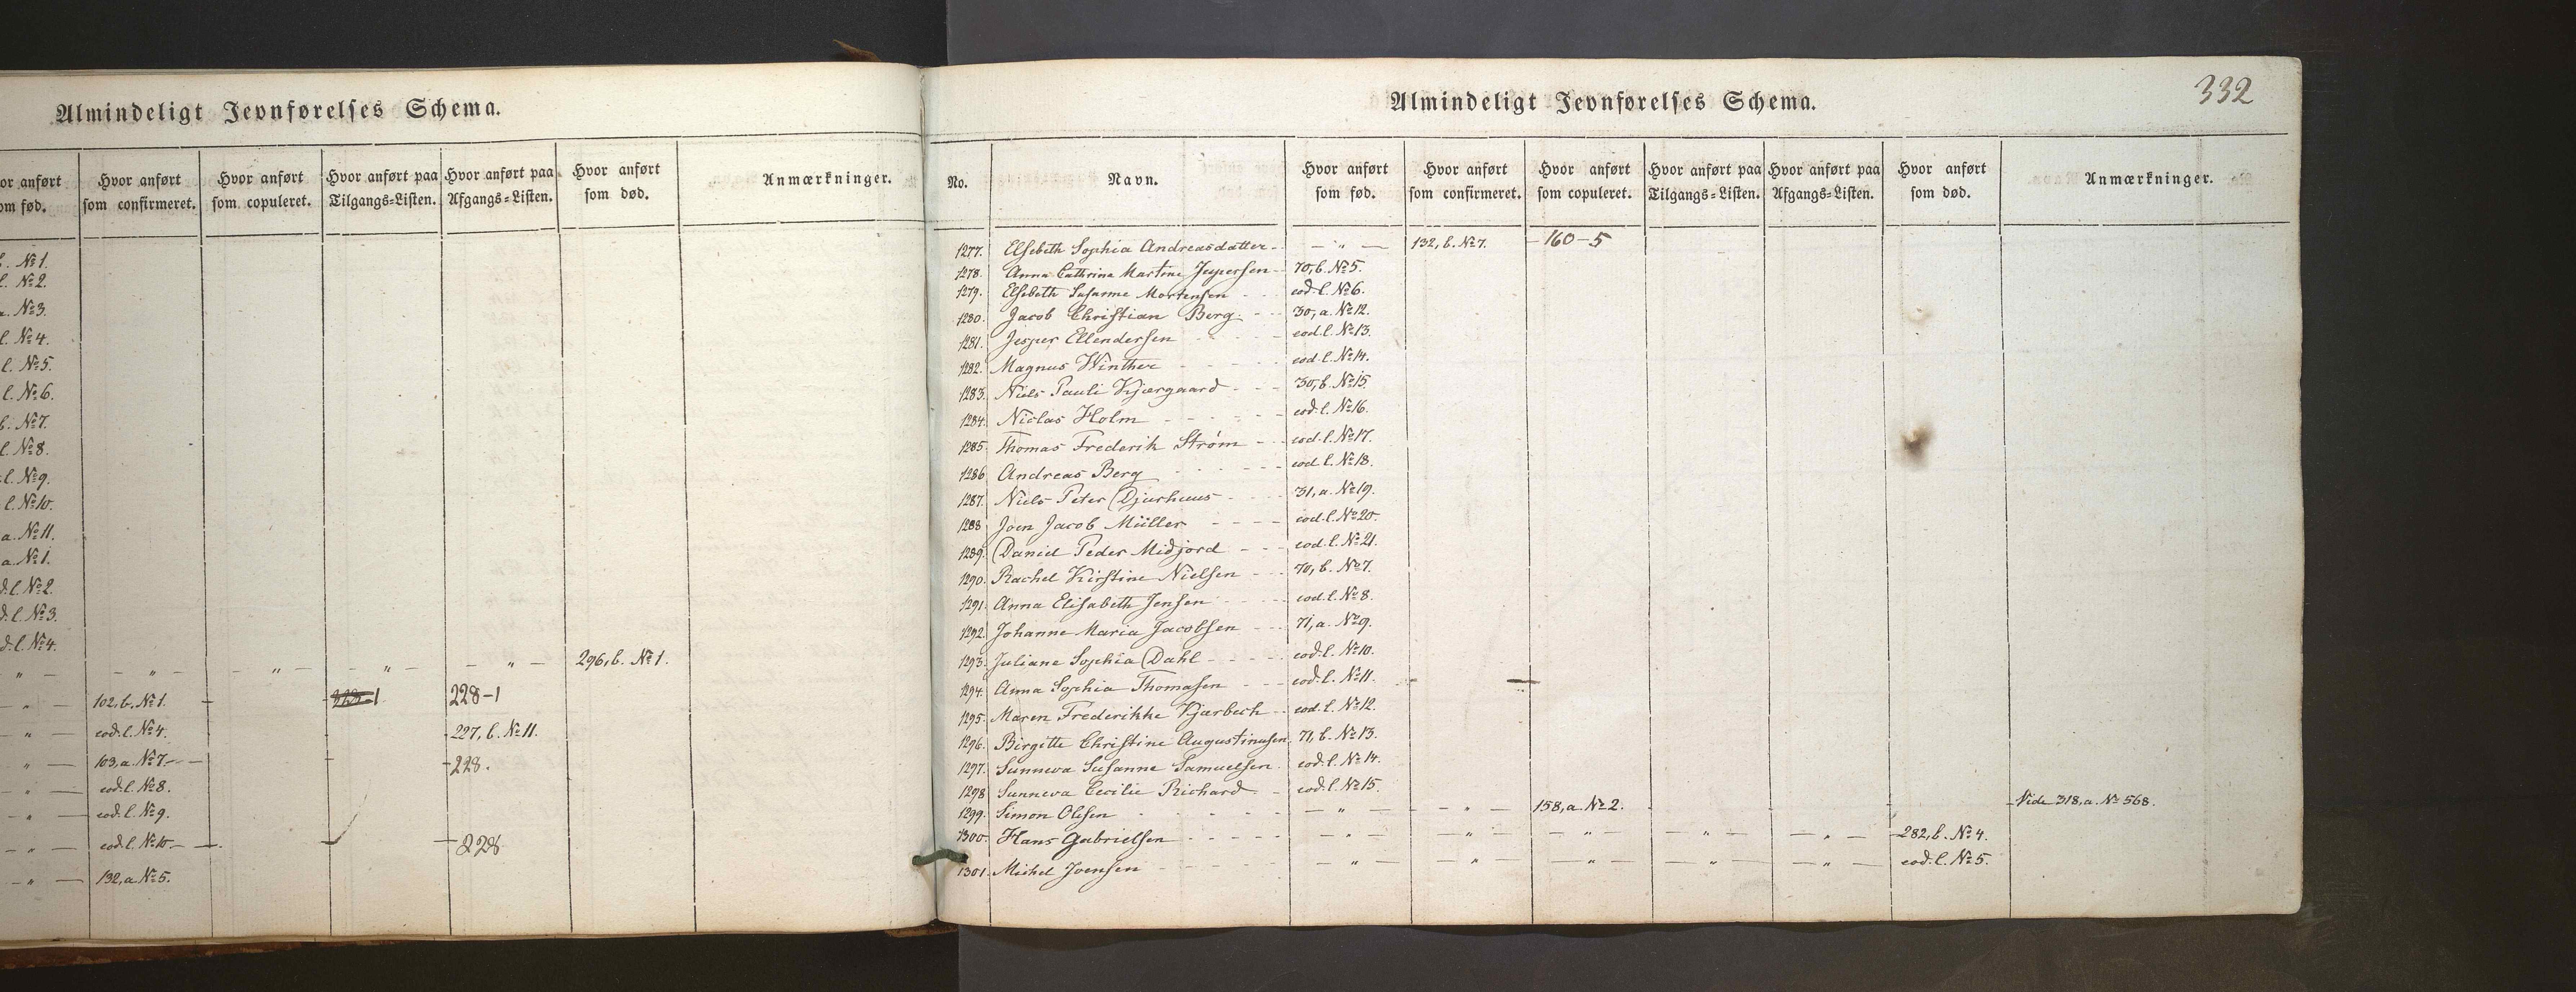 Almindeligt Jevnførelses Schema.
or anført om fød. Hvor anført som confirmeret. Hvor anført som copuleret. Hvor anført paa Tilgangs-Listen. Hvor anført paa Afgangs-Listen. Hvor anført som død. Anmærkninger.
b. No 1.
l. No 2.
a. No 3.
l. No 4.
l. No 5.
l. No 6.
b. No 7.
l. No 8.
l. No 9.
l. No 10.
a. No 11.
a. No 1.
d. l. No 2.
d. l. No 3.
d. l. No 4.
— " — — " — — " — — " — — " — 296, b. No 1.
— " — 102, b. No 1. 228-1
— " — eod. l. No 4. 227, b. No 11.
" — 103, a. No 7. 228.
— " — eod. l. No 8.
— " — eod. l. No 9.
— " — eod. l. No 10. 228
— " — 132, a. No 5.
332
Almindeligt Jevnførelses Schema.
No. Navn. Hvor anført som fød. Hvor anført som confirmeret. Hvor anført som copuleret. Hvor anført paa Tilgangs-Listen. Hvor anført paa Afgangs-Listen. Hvor anført som død. Anmærkninger.
1277. Elsebeth Sophia Andreasdatter — " — 132, b. No 7. 160-5
1278. Anna Cathrina Martine Jespersen 70, b. No 5.
1279. Elsebeth Susanne Mortensen eod. l. No 6.
1280. Jacob Christian Berg 30, a. No 12.
1281. Jesper Ellendersen eod. l. No 13.
1282. Magnus Winther eod. l. No 14.
1283. Niels Pauli Kjærgaard 30, b. No 15.
1284. Niclas Holm eod. l. No 16.
1285. Thomas Frederik Strøm eod. l. No 17.
1286 Andreas Berg eod. l. No 18.
1287. Niels Peter Djurhuus 31, a. No 19.
1288 Joen Jacob Müller eod. l. No 20.
1289. Daniel Peder Midjord eod. l. No 21.
1290. Rachel Kirstine Nielsen 70, b. No 7.
1291. Anna Elisabeth Jensen eod. l. No 8.
1292. Johanne Maria Jacobsen 71, a. No 9.
1293. Juliane Sophia Dahl eod. l. No 10.
1294. Anna Sophia Thomasen eod. l. No 11.
1295. Maren Frederikke Kjærbech eod. l. No 12.
1296. Birgitte Christine Augustinusen 71, b. No 13.
1297. Sunneva Susanne Samuelsen eod. l. No 14.
1298 Sunneva Cecilie Richard eod. l. No 15.
1299. Simon Olesen — " — — " — 158, a. No 2. Vide 318, a. No 568.
1300. Hans Gabrielsen — " — — " — — " — — " — — " — 282, b. No 4.
1301. Michel Joensen — " — — " — — " — — " — — " — eod. l. No 5.